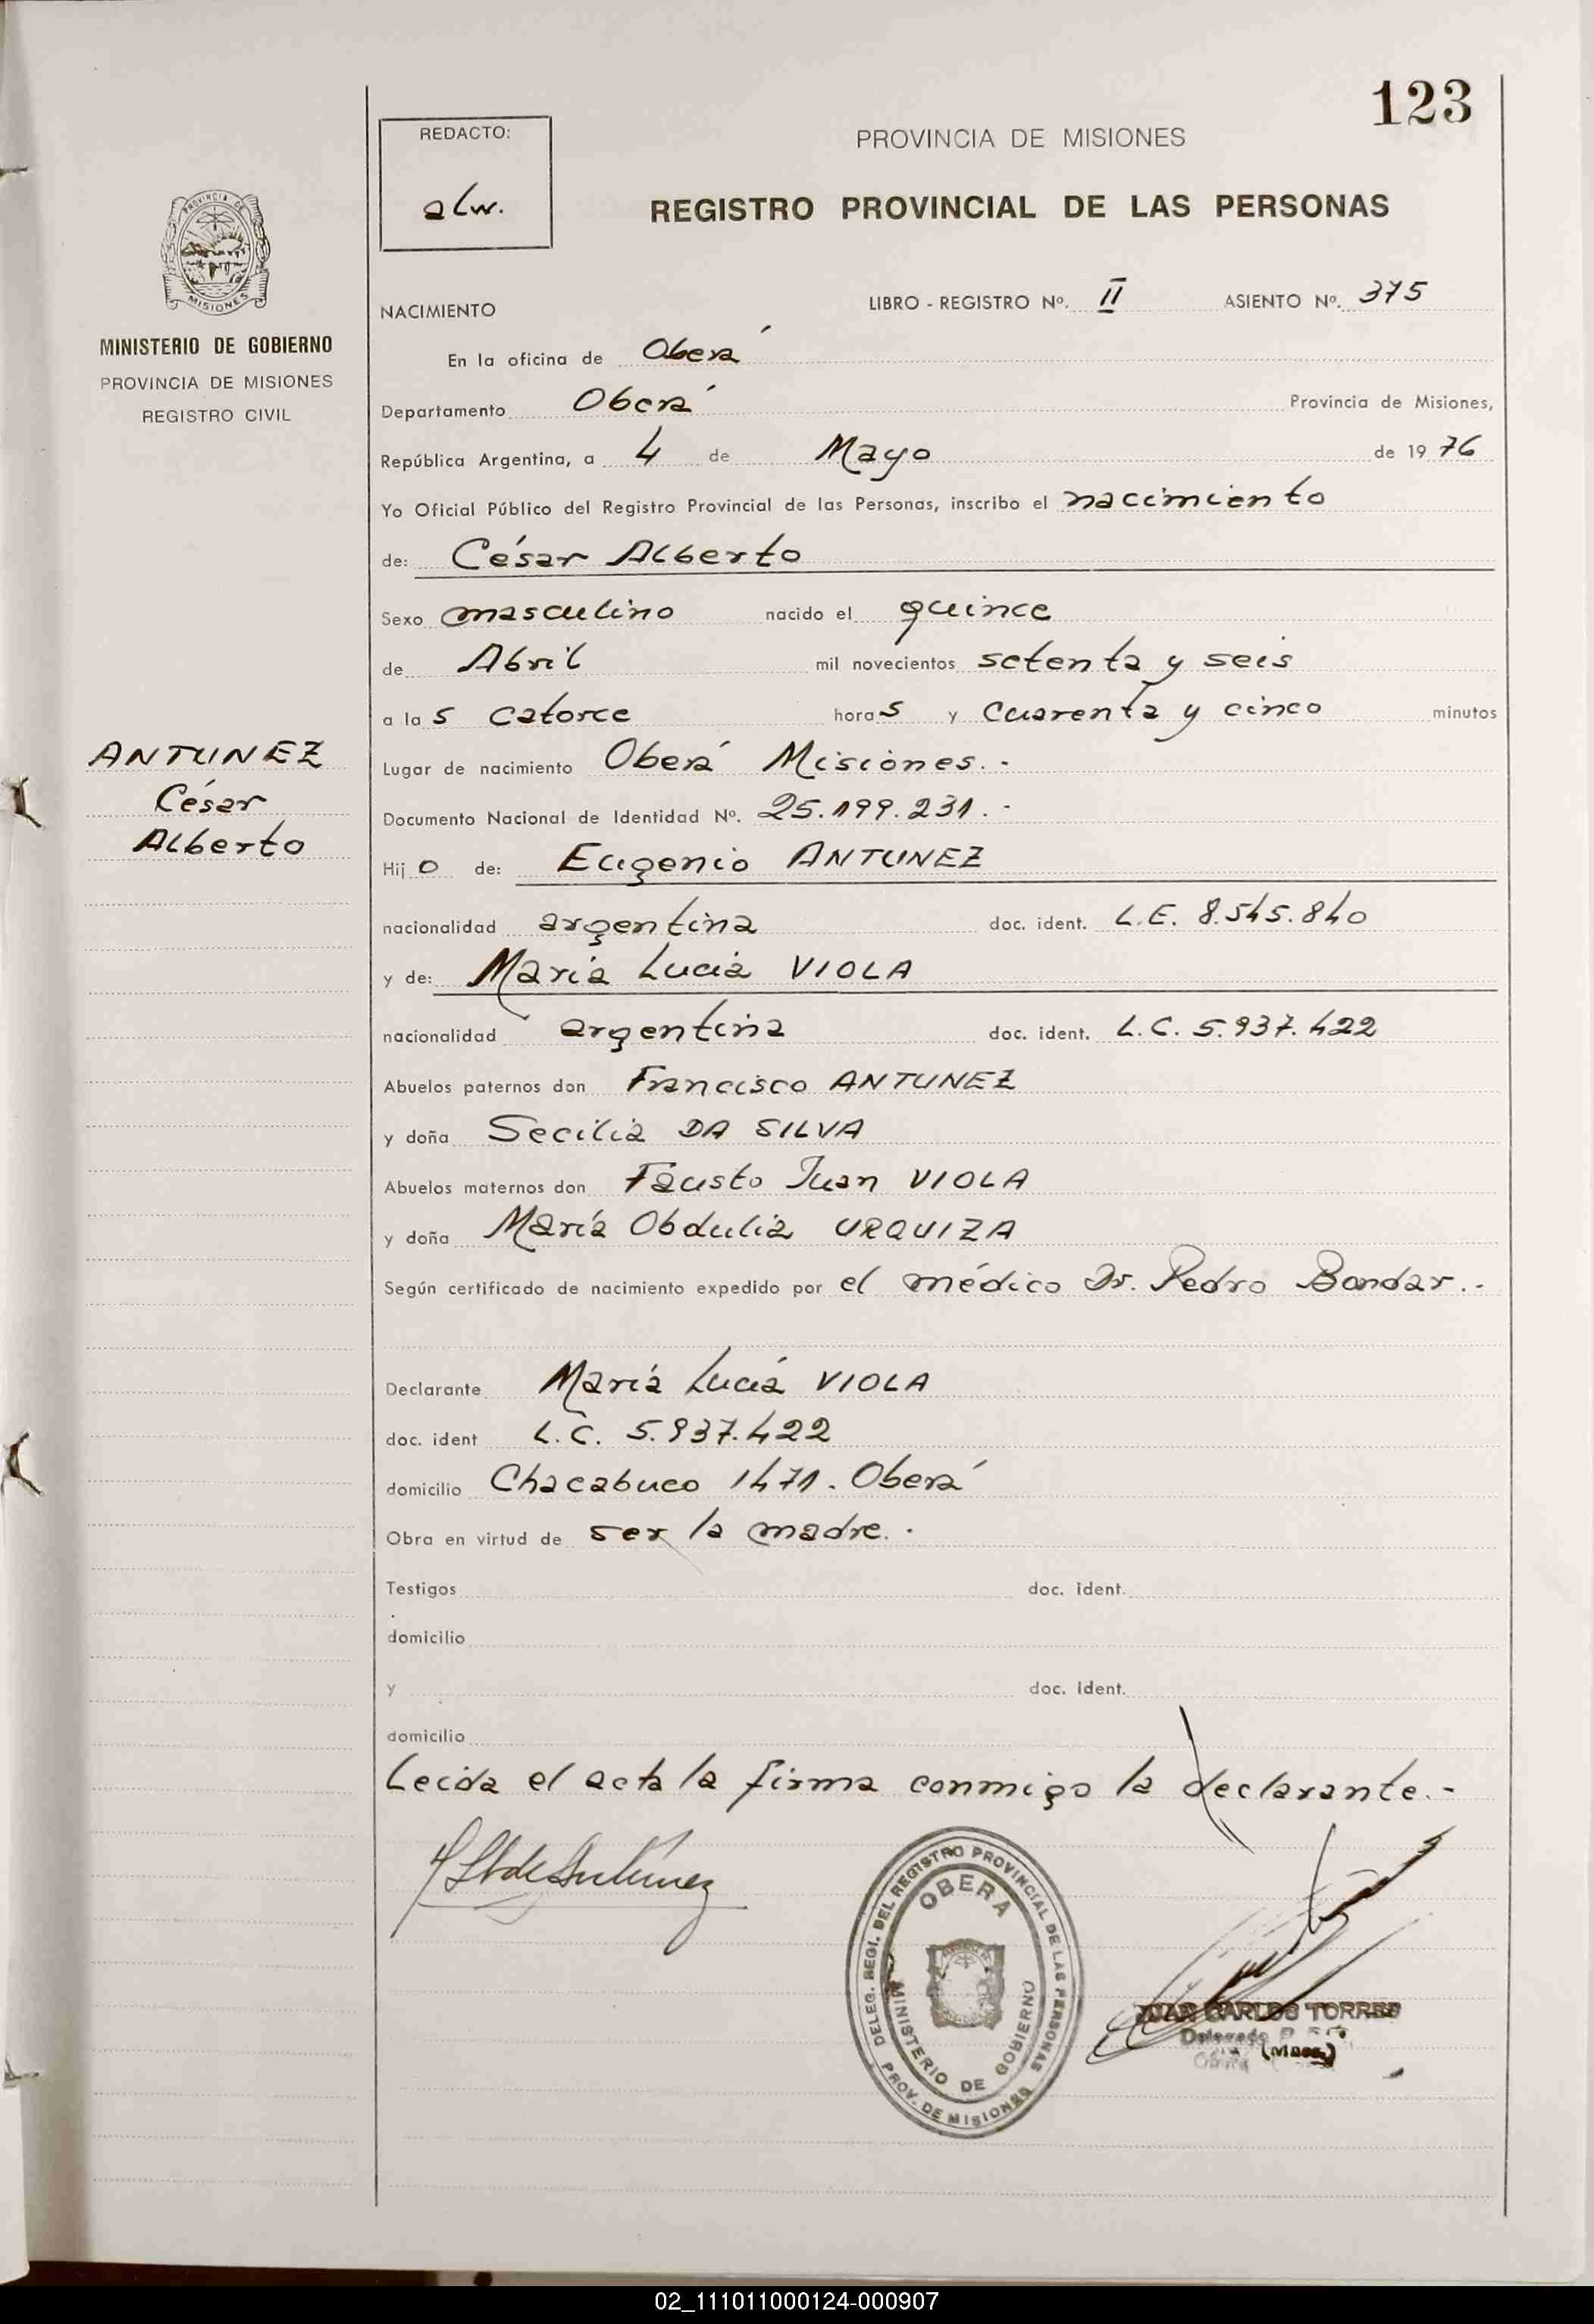 123
REDACTO:
alw.
PROVINCIA DE MISIONES
REGISTRO PROVINCIAL DE LAS PERSONAS
PROVINCIA DE
MISIONES
MINISTERIO DE GOBIERNO
PROVINCIA DE MISIONES
REGISTRO CIVIL
NACIMIENTO LIBRO - REGISTRO Nº. II ASIENTO Nº. 375
En la oficina de Oberá
Departamento Oberá Provincia de Misiones,
República Argentina, a 4 de Mayo de 1976
Yo Oficial Público del Registro Provincial de las Personas, inscribo el nacimiento
de: César Alberto
Sexo masculino nacido el quince
de Abril mil novecientos setenta y seis
a las catorce horas y cuarenta y cinco minutos
ANTUNEZ
César
Alberto
Lugar de nacimiento Oberá Misiones.-
Documento Nacional de Identidad Nº. 25.199.231.-
Hijo de: Eugenio ANTUNEZ
nacionalidad argentina doc. ident. L.E. 8.545.840
y de: María Lucia VIOLA
nacionalidad argentina doc. ident. L.C. 5.937.422
Abuelos paternos don Francisco ANTUNEZ
y doña Secilia DA SILVA
Abuelos maternos don Fausto Juan VIOLA
y doña María Obdulia URQUIZA
Según certificado de nacimiento expedido por el médico Dr. Pedro Bondar.-
Declarante María Lucía VIOLA
doc. ident L.C. 5.937.422
domicilio Chacabuco 1471. Oberá
Obra en virtud de ser la madre.-
Testigos doc. ident.
domicilio
y doc. ident.
domicilio
Leida el acta la firma conmigo la declarante.-
DELEG. REGI. DEL REGISTRO PROVINCIAL DE LAS PERSONAS
OBERA
MINISTERIO DE GOBIERNO
PROV. DE MISIONES
JUAN CARLOS TORRES
Delegado
Oberá (Mnes)
02_111011000124-000907